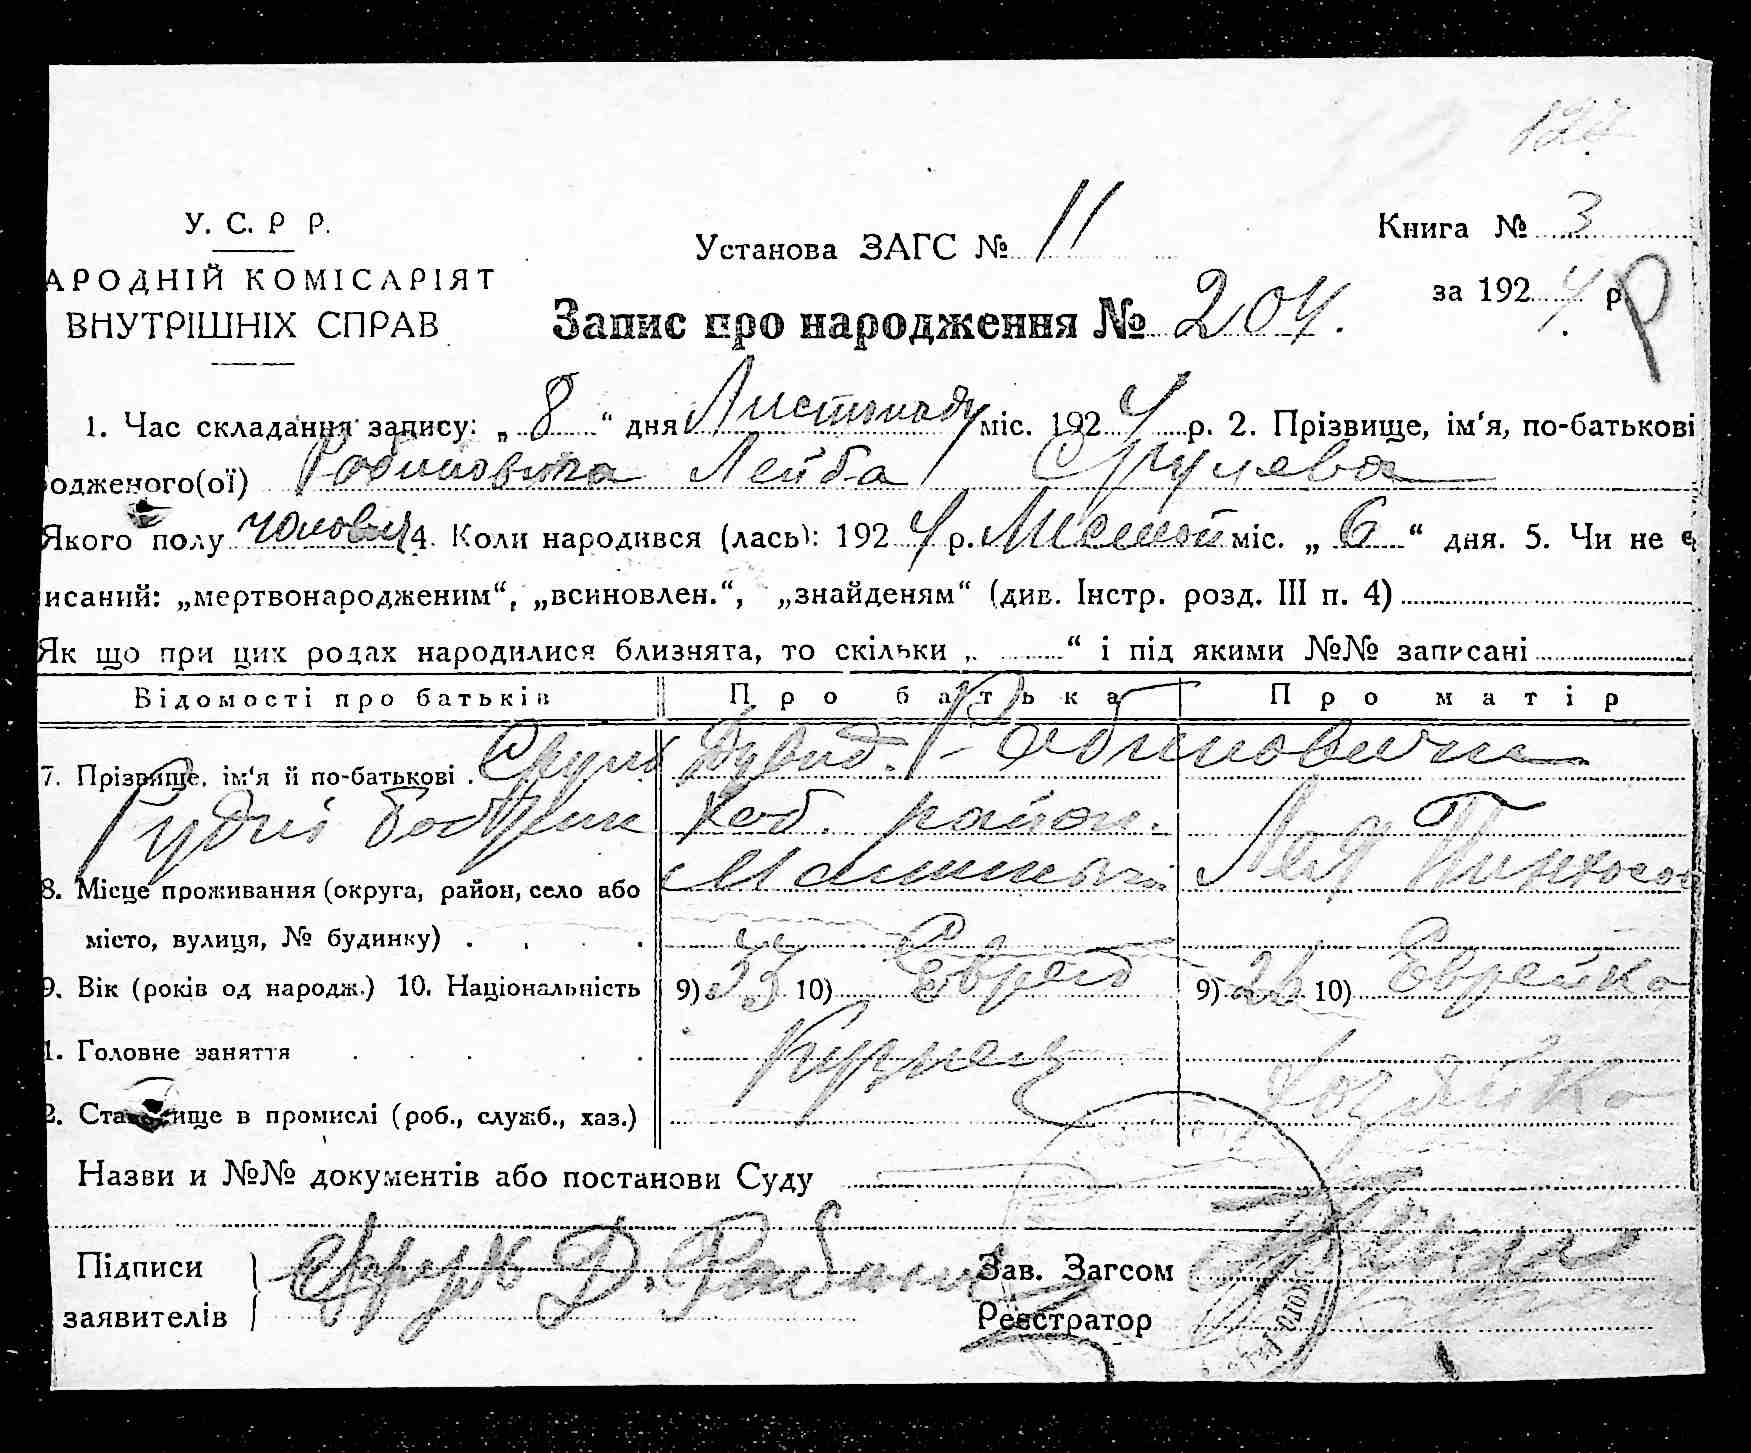 127
У. С. Р Р.
АРОДНІЙ КОМІСАРІЯТ
ВНУТРІШНІХ СПРАВ
Установа ЗАГС № 11
Книга № 3
за 1924 р.
Р
Запис про народження № 204.
1. Час складання запису: „ 8 “ дня Листопаду міс. 1924 р. 2. Прізвище, ім‘я, по-батькові
одженого(ої) Рабиновича Лейба Срулева
Якого полу чоловіч 4. Коли народився (лась): 1924 р. міс. „ 6 “ дня. 5. Чи не є
исаний: „мертвонародженим“, „всиновлен.“, „знайденям“ (див. Інстр. розд. III п. 4)
Як що при цих родах народилися близнята, то скільки „ “ і під якими №№ записані
Відомості про батьків Про батька Про матір
7. Прізвище, ім‘я й по-батькові . Сруль Дувид. Рабинович
район. Лея
8. Місце проживання (округа, район, село або
місто, вулиця, № будинку)
9. Вік (років од народж.) 10. Національність 9) 33 10) Еврей 9) 26 10) Еврейка
1. Головне заняття Кузнец
2. Становище в промислі (роб., служб., хаз.) Хозяйка
Назви и №№ документів або постанови Суду
Підписи
заявителів Срул Д. Рабинович
Зав. Загсом
Реєстратор